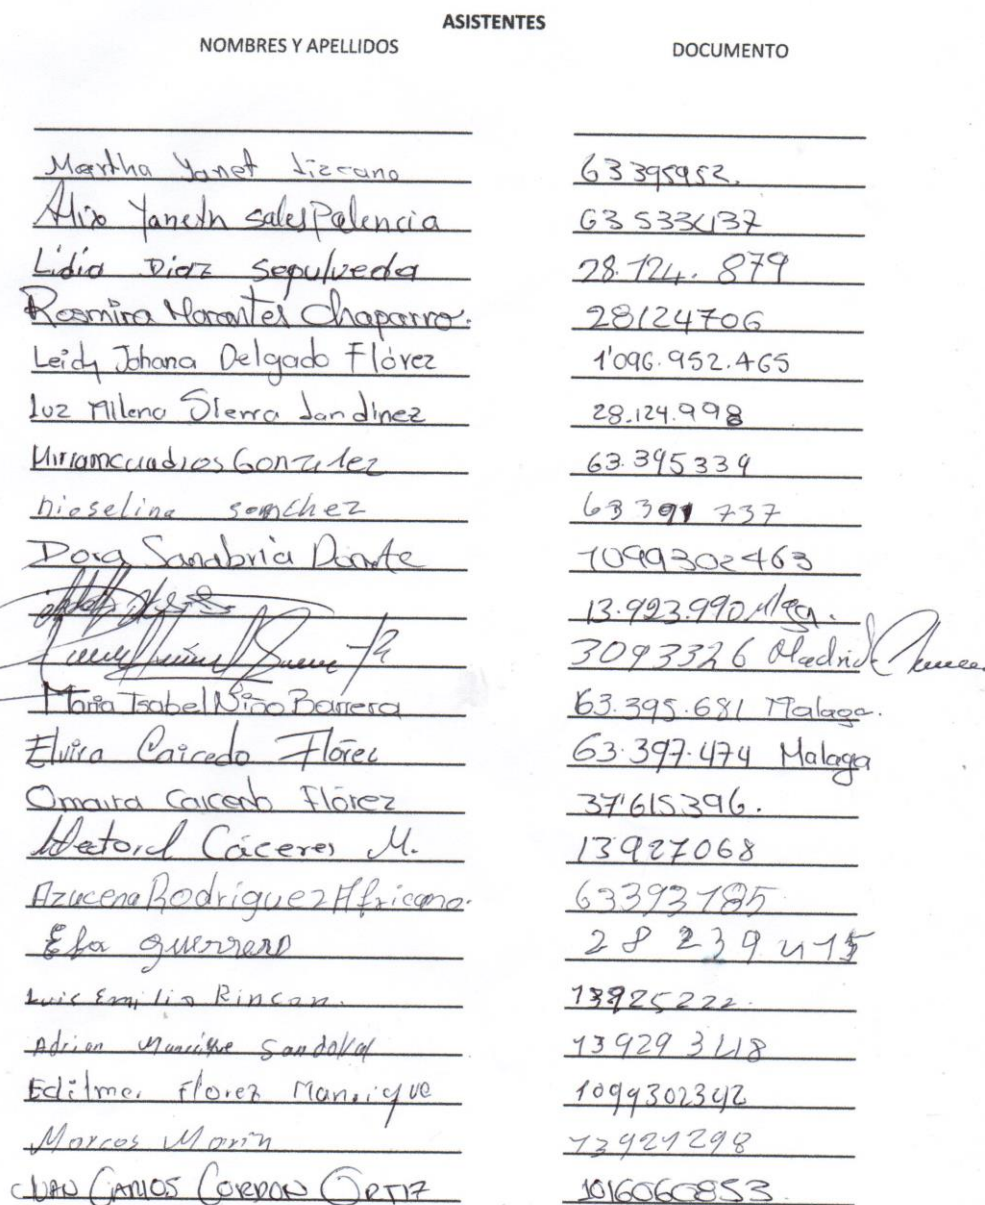 ASISTENTES
NOMBRES Y APELLIDOS DOCUMENTO
Martha Yanet Lizcano 63395952.
Alix Yaneth Sales Palencia 63533437
Lidia Diaz Sepulveda 28.124.879
Rosmira Morantes Chaparro. 28124706
Leidy Johana Delgado Flórez 1'096.952.465
Luz Milena Sierra Jandinez 28.124.998
Miriam cuadros Gonzalez 63.395339
Dioselina sanchez 63391737
Dora Sanabria Duarte 1099302463
13.923.990 Mlga.
3093326 Madrid
Maria Isabel Niño Barrera 63.395.681 Malaga.
Elvira Caicedo Flórez 63.397.474 Malaga
Omaira Caicedo Flórez 37'615396.
Cáceres M. 13927068
Azucena Rodriguez Africano. 63393185
Elsa guerrero 28239415
Luis Emilio Rincon. 13925222.
Adrian Manrique Sandoval 139293418
Edilmer Florez Manrique 1099302342
Marcos Marin 13921298
JUAN CARLOS CORDON ORTIZ 1016060853.